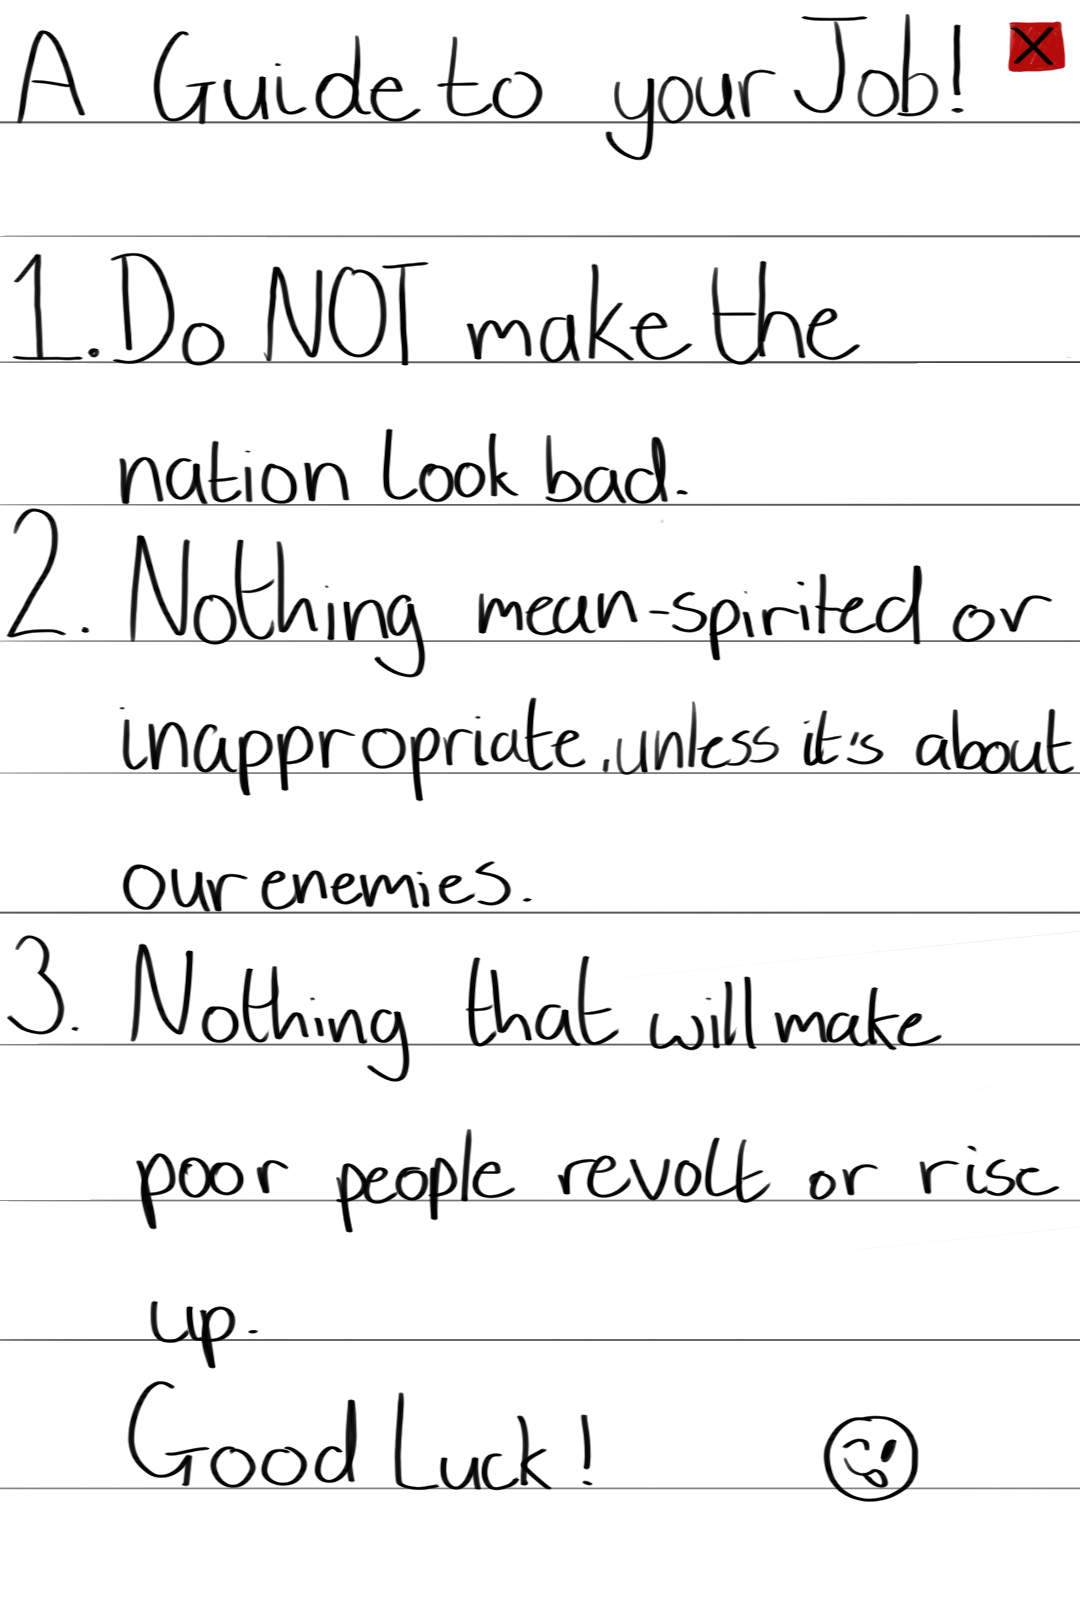 A Guide to your Job! X
1. Do NOT make the
nation look bad.
2. Nothing mean-spirited or
inappropriate, unless it's about
our enemies.
3. Nothing that will make
poor people revolt or rise
up.
Good Luck!